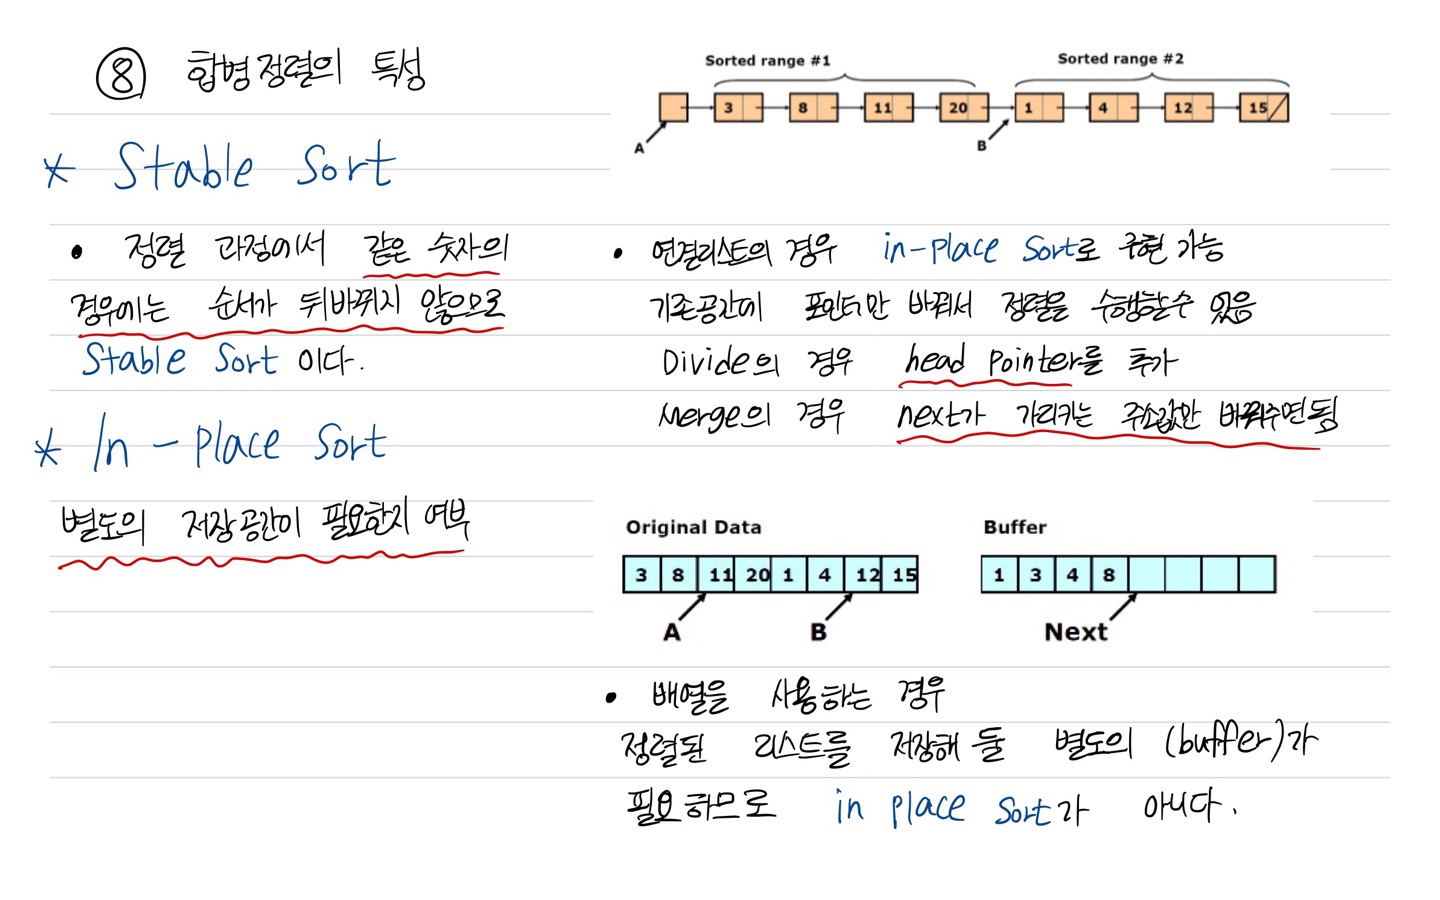 ⑧ 합병정렬의 특성
* Stable Sort
• 정렬 과정에서 같은 숫자의
경우에는 순서가 뒤바뀌지 않으므로
Stable Sort 이다.
* In - place Sort
별도의 저장공간이 필요한지 여부
Sorted range #1 Sorted range #2
3 8 11 20 1 4 12 15
A B
• 연결리스트의 경우 in-place Sort로 구현 가능
기존공간에 포인터만 바꿔서 정렬을 수행할수 있음
Divide의 경우 head pointer를 추가
Merge의 경우 next가 가리키는 주소값만 바꿔주면됨
Original Data Buffer
3 8 11 20 1 4 12 15 1 3 4 8
A B Next
• 배열을 사용하는 경우
정렬된 리스트를 저장해 둘 별도의 (buffer)가
필요하므로 in place Sort가 아니다.